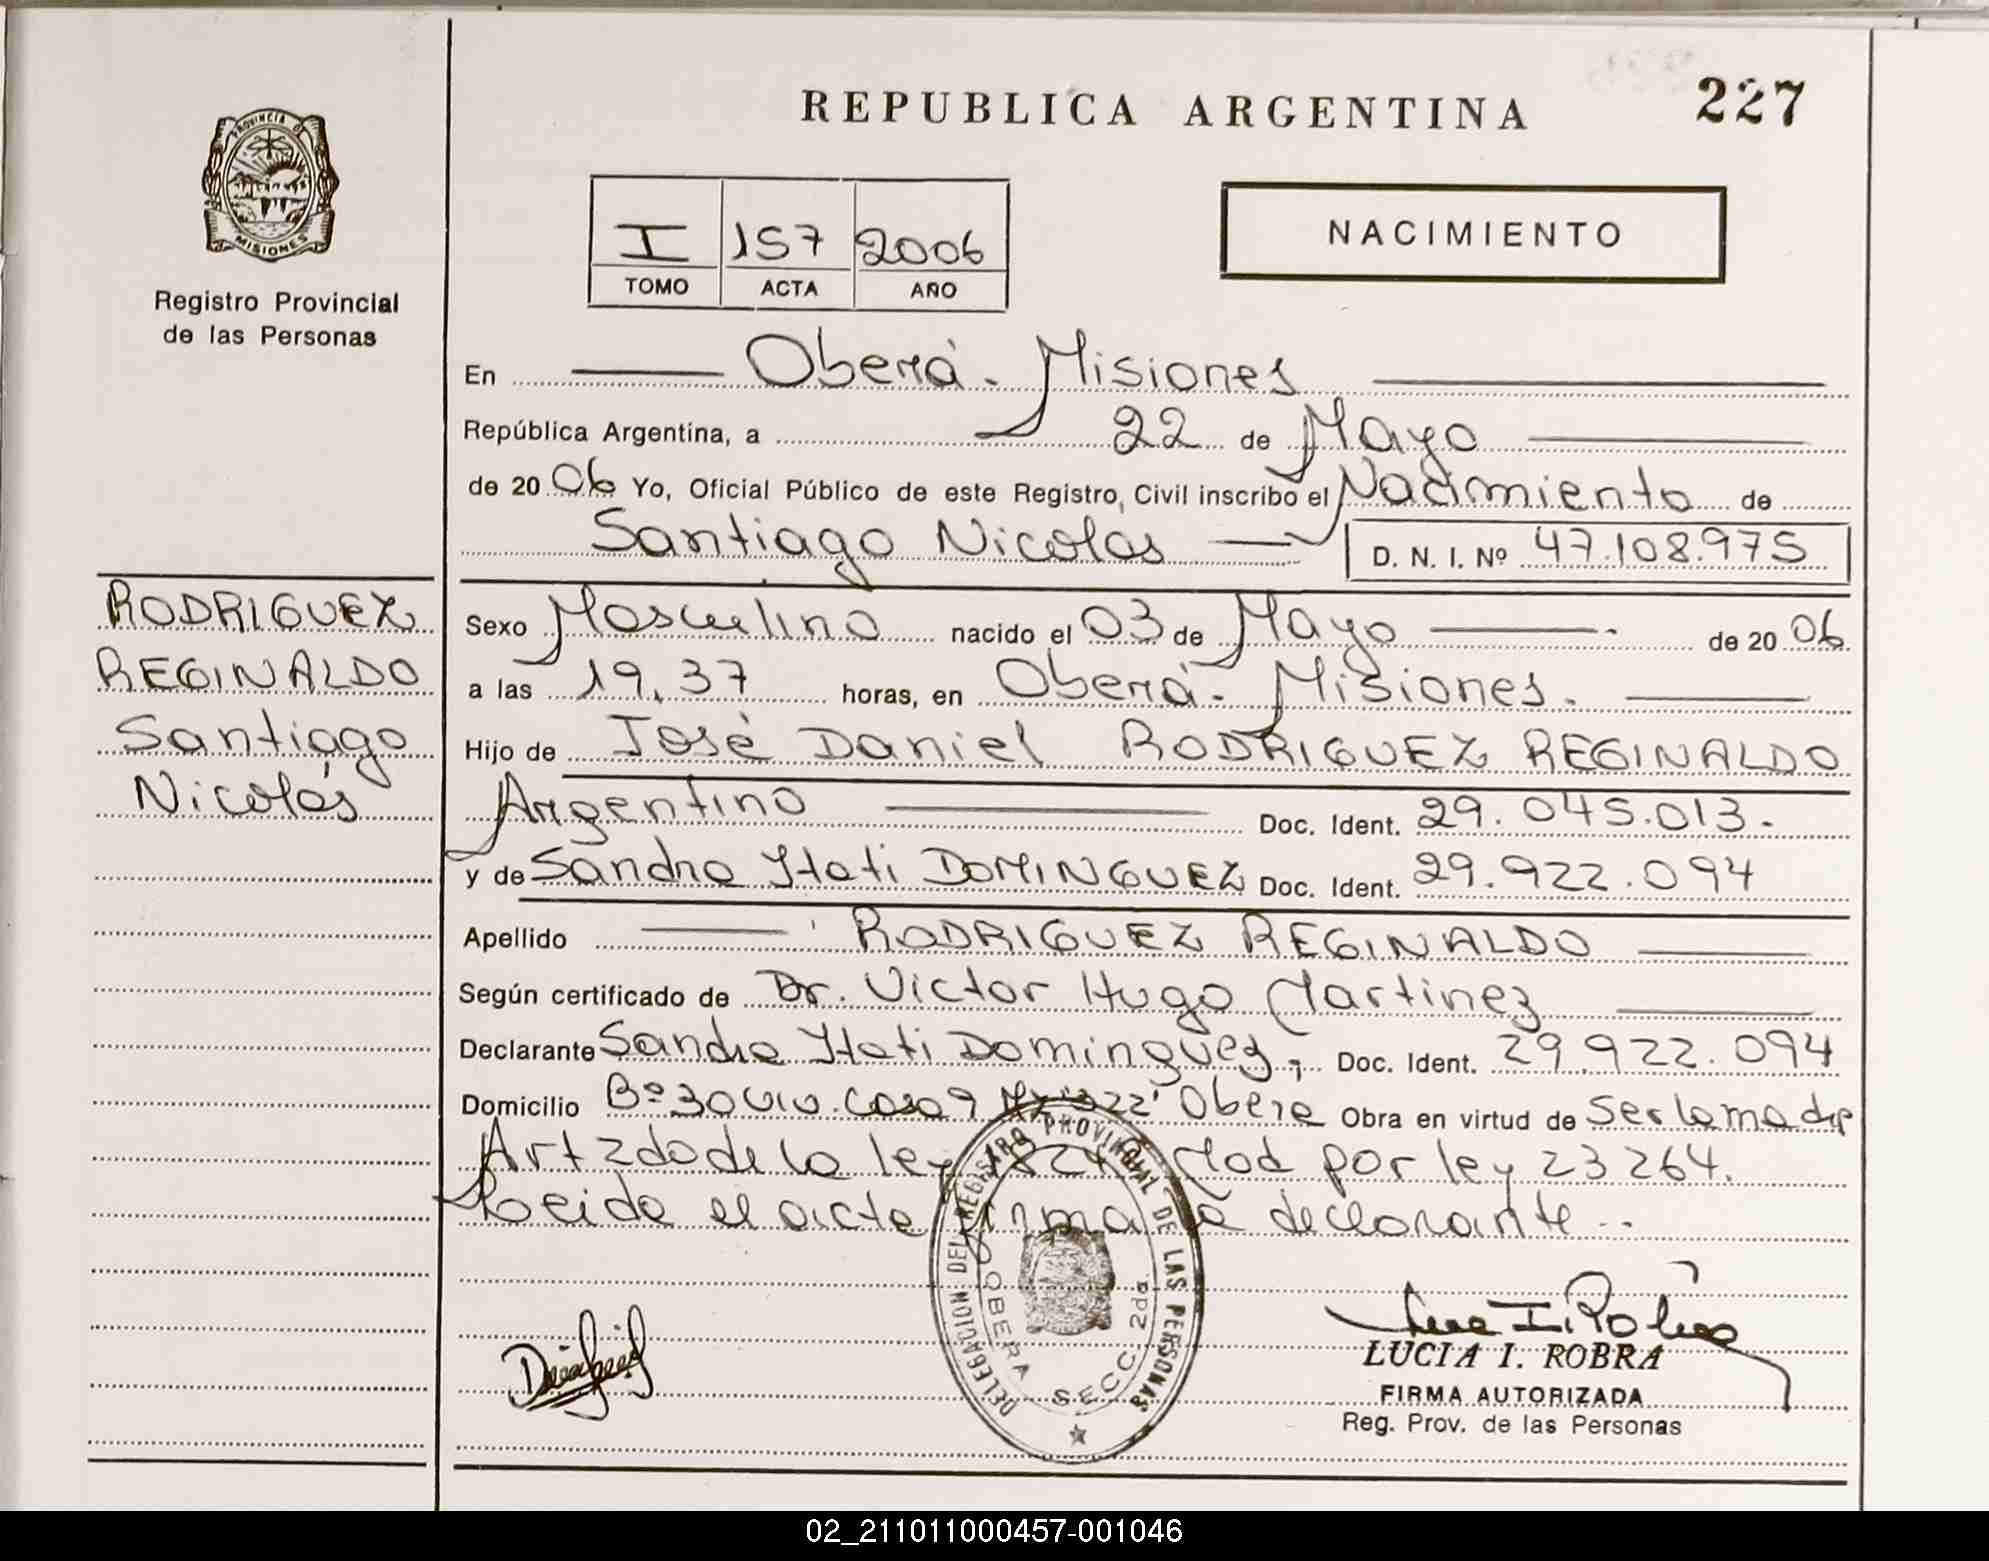 REPUBLICA ARGENTINA
227
PROVINCIA DE
MISIONES
Registro Provincial
de las Personas
I 157 2006
TOMO ACTA AÑO
NACIMIENTO
En Oberá - Misiones
República Argentina, a 22 de Mayo
de 20 06 Yo, Oficial Público de este Registro Civil inscribo el Nacimiento de
Santiago Nicolás D. N. I. Nº 47.108.975
RODRIGUEZ
REGINALDO
Santiago
Nicolás
Sexo Masculino nacido el 03 de Mayo de 20 06
a las 19,37 horas, en Oberá - Misiones.
Hijo de José Daniel RODRIGUEZ REGINALDO
Argentino Doc. Ident. 29.045.013.
y de Sandra Itati DOMINGUEZ Doc. Ident. 29.922.094
Apellido RODRIGUEZ REGINALDO
Según certificado de Dr. Victor Hugo Martinez
Declarante Sandra Itati Dominguez, Doc. Ident. 29.922.094
Domicilio Bº 30 viv. Casa 9 Obera Obra en virtud de Ser la madre
Art 2do de la ley Mod por ley 23264.
Leida el acta firma la declarante..
DELEGACION DEL REGISTRO PROVINCIAL DE LAS PERSONAS
OBERA SECC. 2da
LUCIA I. ROBRA
FIRMA AUTORIZADA
Reg. Prov. de las Personas
02_211011000457-001046